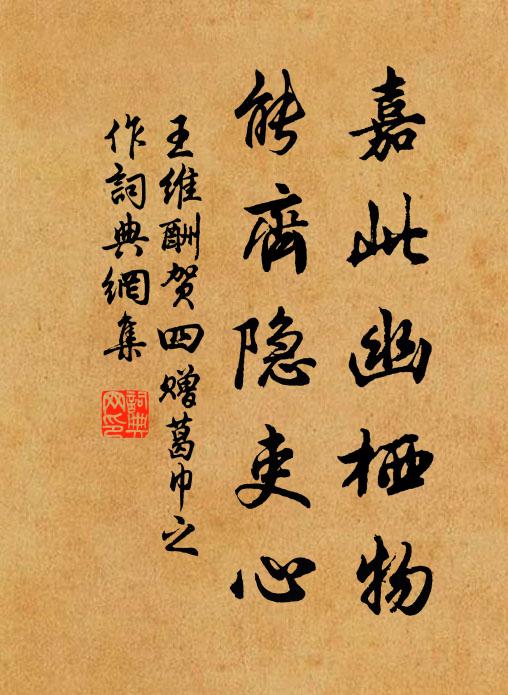 嘉此幽栖物
能齊隐吏心
王維酬贺四赠葛巾之
作詞典網集
詞典
网印